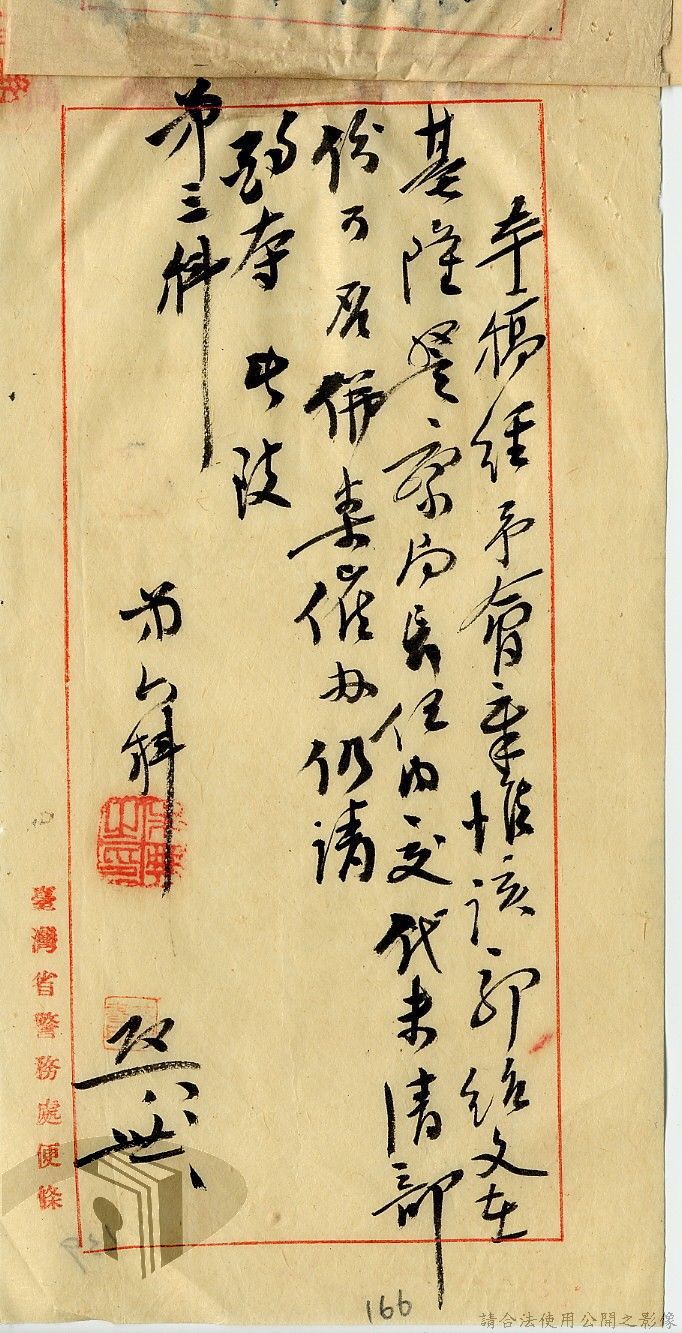 本稿經予會章惟該郭紹文在
基隆警察局長任內交代未清部
份可否併案催办仍請
酌夺 此致
第三科
第六科
臺灣省警務處便條
166
請合法使用公開之影像